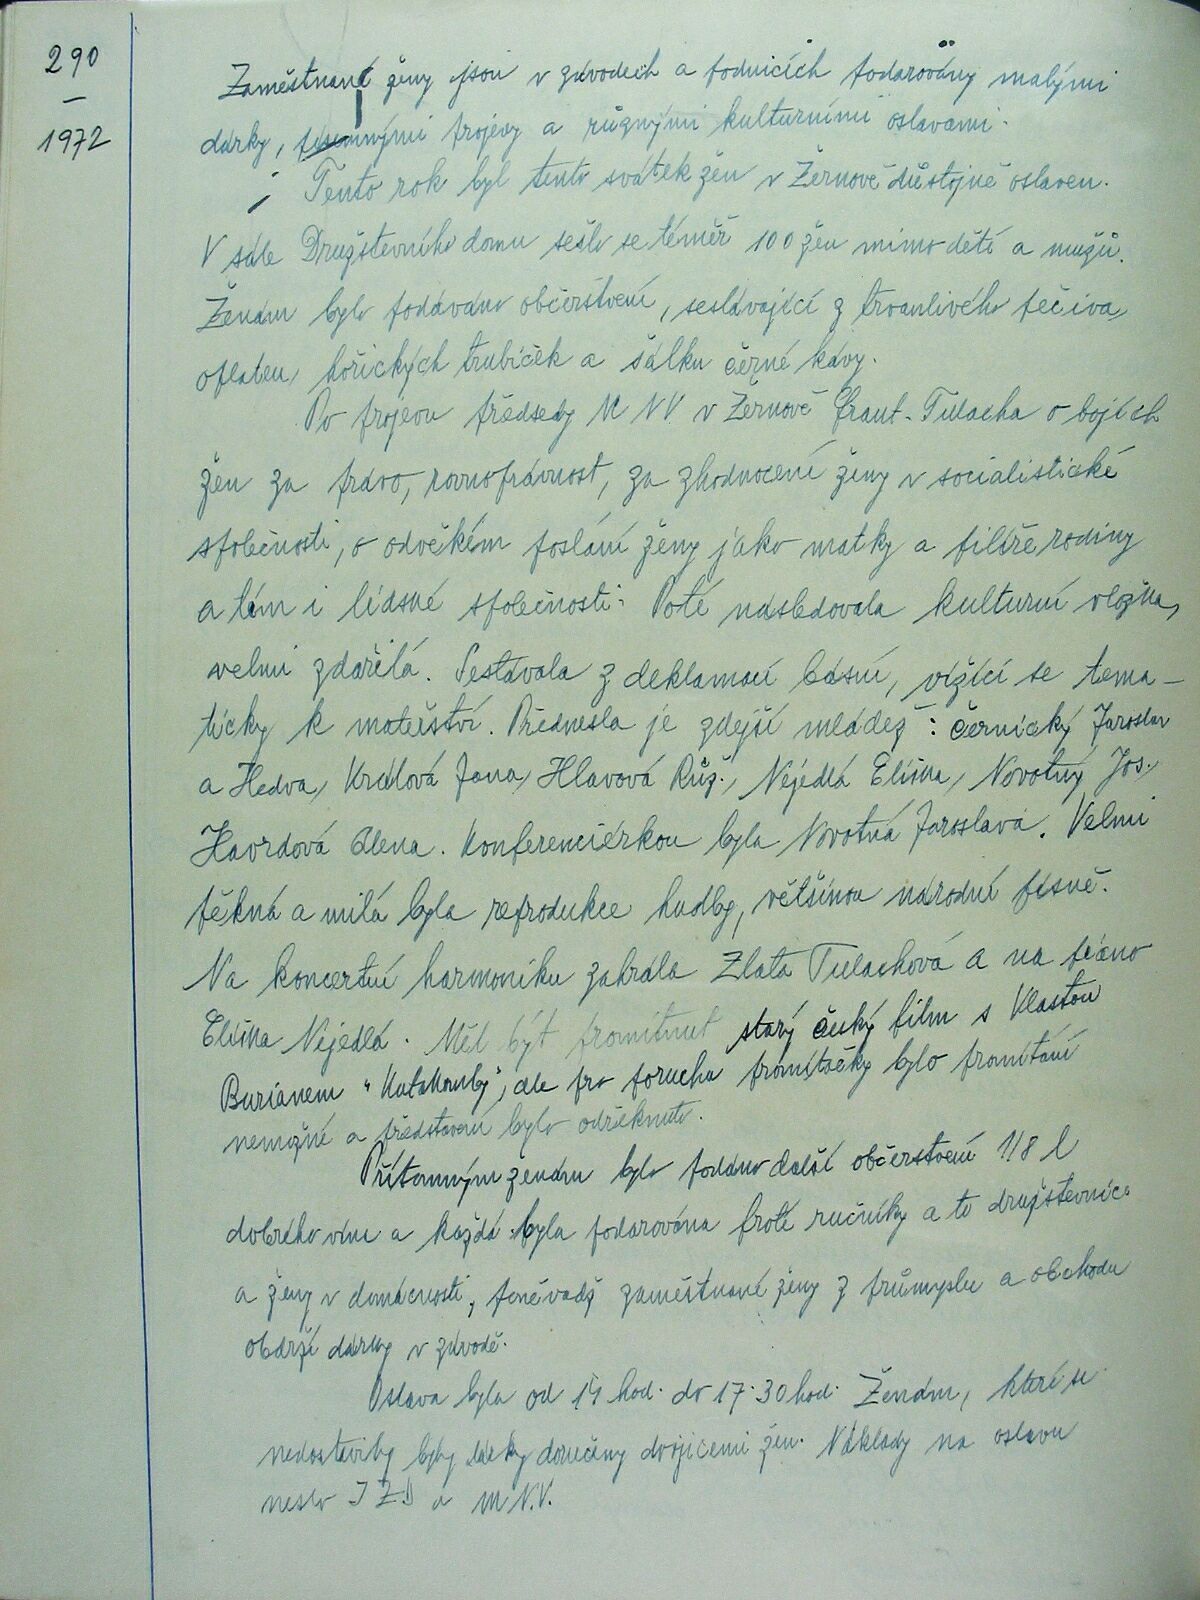 290
–
1972
Zaměstnané ženy jsou v závodech a podnicích podarovány malými
dárky, písemnými projevy a různými kulturními oslavami.
Tento rok byl tento svátek žen v Žernově důstojně oslaven.
V sále Družstevního domu sešlo se téměř 100 žen mimo dětí a mužů.
Ženám bylo podáváno občerstvení, seslávající z trvanlivého pečiva,
oplatek, hořických trubiček a šálku černé kávy.
Po projevu předsedy MNV v Žernově Frant. Tulacha o bojích
žen za právo, rovnoprávnost, za zhodnocení ženy v socialistické
společnosti, o odvěkém poslání ženy jako matky a pilíře rodiny
a tím i lidské společnosti. Poté následovala kulturní vložka,
velmi zdařilá. Sestávala z deklamací básní, vížící se tema-
ticky k mateřství. Přednesla je zdejší mládež: Černický Jaroslav
a Hedva, Králová Jana, Hlavová Růž., Nejedlá Eliška, Novotný Jos.,
Havrdová Alena. Konferenciérkou byla Novotná Jaroslava. Velmi
pěkná a milá byla reprodukce hudby, většinou národní písně.
Na koncertní harmoniku zahrála Zlata Tulachová a na piáno
Eliška Nejedlá. Měl být promítnut starý český film s Vlastou
Burianem "Katakomby", ale pro poruchu promítačky bylo promítání
nemožné a představení bylo odřeknuto.
Přítomným ženám bylo podáno další občerstvení 1/8 l
dobrého vína a každá byla podarována froté ručníky a to družstevnice
a ženy v domácnosti, poněvadž zaměstnané ženy z průmyslu a obchodu
obdrží dárky v závodě.
Oslava byla od 14 hod. do 17.30 hod. Ženám, které se
nedostavily byly dárky doručeny dvojicemi žen. Náklady na oslavu
neslo JZD a MNV.